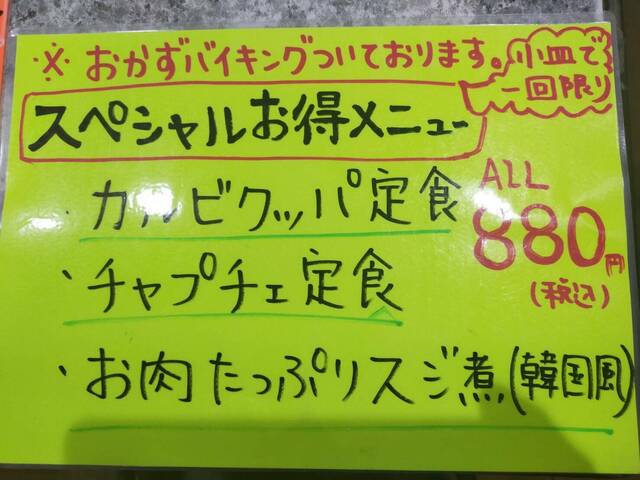 ※おかずバイキングついております。
小皿で
一回限り
スペシャルお得メニュー
・カルビクッパ定食
ALL
880円
(税込)
・チャプチェ定食
・お肉たっぷりスジ煮(韓国風)